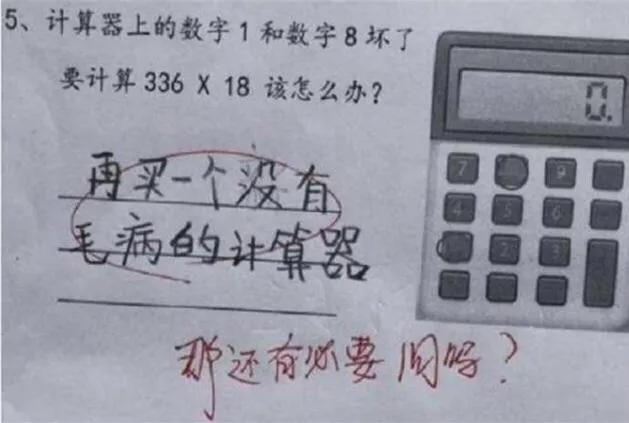 5、计算器上的数字1和数字8坏了
要计算336 X 18 该怎么办?
0.
再买一个没有
毛病的计算器
7 9
4 5 6
2 3
那还有必要问吗?